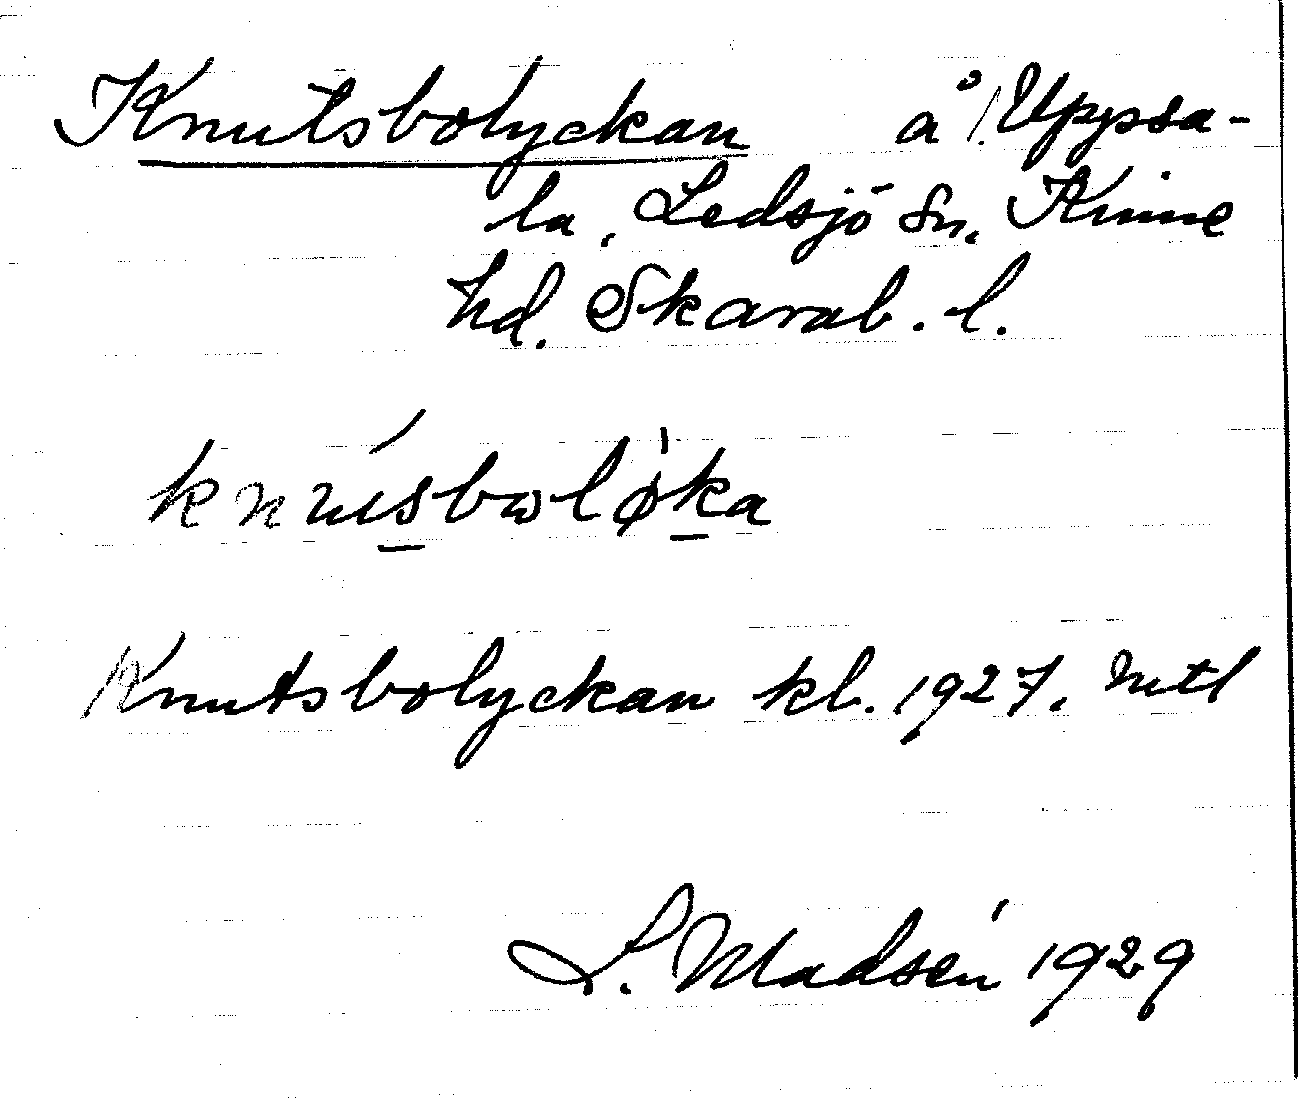 Knutsbolyckan å Uppsa-
la, Ledsjö sn. Kinne
hd. Skarab. l.
knúsbωlø̍ka
Knutsbolyckan kl. 1927. mtl
S. Madsén 1929